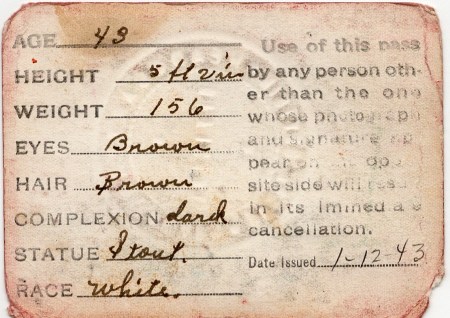 AGE 43
HEIGHT 5 ft 2 in
WEIGHT 156
EYES Brown
HAIR Brown
COMPLEXION dark
STATUE Stout.
RACE White.
Use of this pass
by any person oth-
er than the one
whose photograph
and signature ap-
pear on the oppo-
site side will result
in its immediate
cancellation.
Date Issued 1-12-43